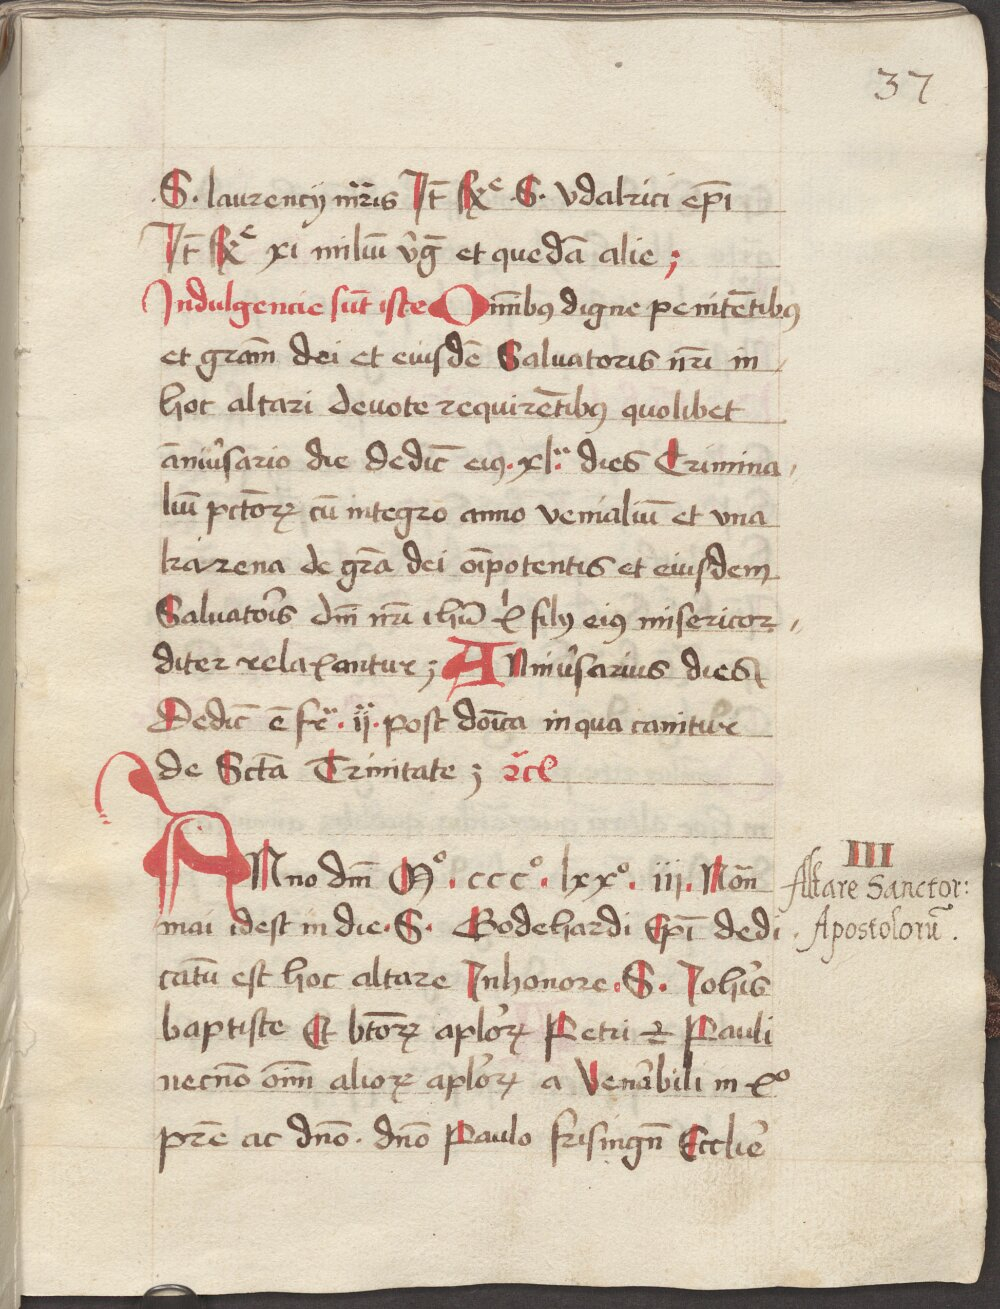 37
.S. laurencij mr̄ris Jt̄ Rxͤ .S. vdalrici ep̄i
Jt̄ Rxͤ xi miliū v̓g̅ et quedā alie ;
Jndulgencie sūt iste Om̄ibꝯ digne penitētibꝯ
et grām dei et eiusdē Saluatoris nr̄i in
hoc altari deuote requirētibꝯ quolibet
āniu̓sario die dedic̄ eiꝯ . xl. dies Crimina
liū pctōꝝ cū integro anno venialiū et vna
karena de gr̄a dei oīpotentis et eiusdem
Saluator̓s dm̄ nr̄i ihū x̓ filꝯ eiꝯ misericor
diter relaxantur ; ANniu̓sarius dies
Dedic̄ ē fr̄ . ij . post dōica in qua canitur
de Sctā Trinitate ; r̄cl
ANno dm̄ Mº . cccº . lxxº . iij . Nōn
mai idest in die . S . Godehardi Ep̄i dedi
catū est hoc altare Jnhonore . S . Joh̓is
baptiste Et btōꝝ aplo̓ꝝ Petri et Pauli
necnō oīm alioꝝ aplo̓ꝝ a Ven̓abili in xº
pr̄e ac dn̄o . dn̄o Paulo frisingn̄ Eccli̓e
III
Altare Sanctor:
Apostolorū .